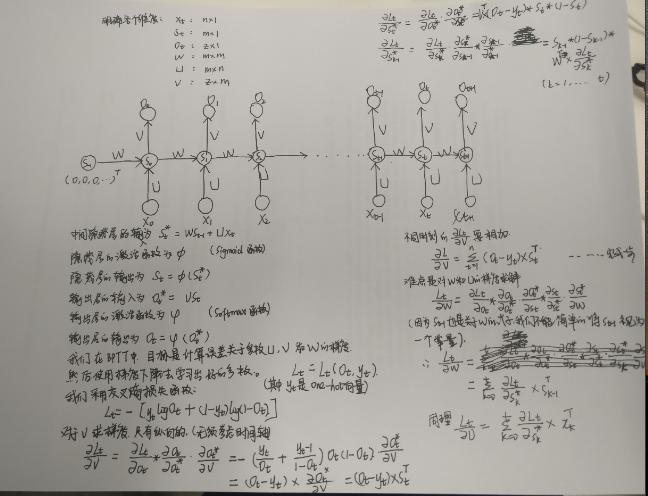 明确各个维度: Xt: n×1
St: m×1
Ot: z×1
W: m×m
U: m×n
V: z×m
∂Lt/∂St* = ∂Lt/∂Ot* · ∂Ot*/∂St* = V^T(Ot-yt)*St*(1-St)
∂Lt/∂Sk-1* = ∂Lt/∂Sk* · ∂Sk*/∂Sk-1 * ∂Sk-1/∂Sk-1* = Sk-1*(1-Sk-1)*
W^T * ∂Lt/∂Sk*
(k=1,.... t)
O0 O1 O2 Ot-1 Ot Ot+1
V V V V V V
S-1 W S0 W S1 W S2 ...... St-1 W St W St+1
(0,0,0,...)^T
U U U U U U
X0 X1 X2 Xt-1 Xt Xt+1
中间隐藏层的输入为 St* = WSt-1 + UXt
隐藏层的激活函数为 φ (sigmoid 函数)
隐藏层的输出为 St = φ(St*)
输出层的输入为 Ot* = VSt
输出层的激活函数为 ψ (softmax 函数)
输出层的输出为 Ot = ψ(Ot*)
我们在BPTT中,目标是计算误差关于参数U,V和W的梯度
然后使用梯度下降法学习出好的参数。 Lt = Lt(Ot, yt)
我们采用交叉熵损失函数: (其中yt是one-hot向量)
Lt = -[yt log Ot + (1-yt) log(1-Ot)]
对V求梯度,只有纵向的,(无须考虑时间轴)
∂Lt/∂V = ∂Lt/∂Ot * ∂Ot/∂Ot* · ∂Ot*/∂V = -(yt/Ot + yt-1/1-Ot) Ot(1-Ot) ∂Ot*/∂V
= (Ot-yt) × ∂Ot*/∂V = (Ot-yt)×St^T
不同时刻的 ∂Lt/∂V 要相加
∂L/∂V = Σ t=1 n (Ot-yt)×St^T
难点是对W和U的梯度求解
Lt/∂W = ∂Lt/∂Ot * ∂Ot/∂Ot* * ∂Ot*/∂St * ∂St/∂St* · ∂St*/∂W
(因为St-1也是关于W的式子,我们不能简单的将St-1视为
一个常量).
∴ Lt/∂W
= Σ k=0 t ∂Lt/∂Sk* × Sk-1^T
同理 Lt/∂U = Σ k=0 t ∂Lt/∂Sk* × Xk^T